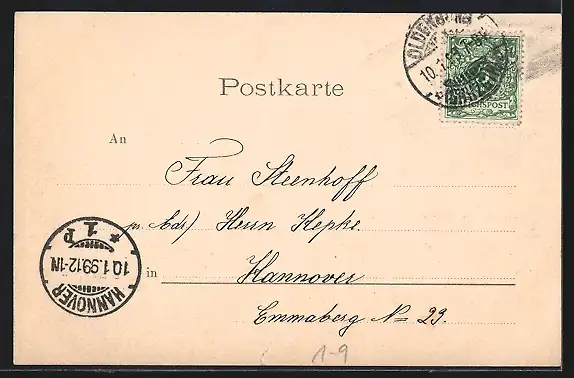 OLDENBURG
10.1.99.7-8V
REICHSPOST
Postkarte
An
Frau Steenhoff
pr. Adr) Herrn Hepke.
HANNOVER
10.1.99.12-1N
* 1. p
in
Hannover
Emmaberg N= 29.
1-9